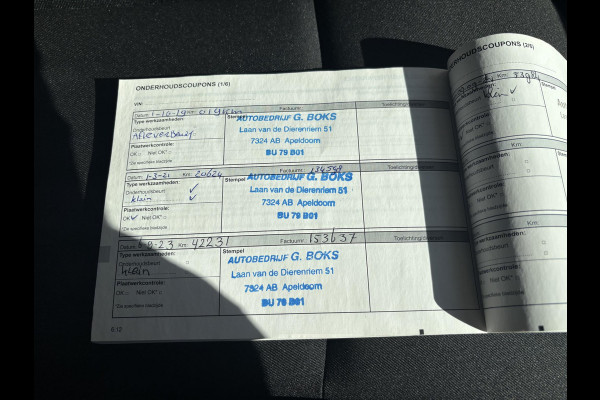 ONDERHOUDSCOUPONS (1/6)
VIN:
Datum: 1-10-19 Km: Factuurnr.: Toelichting
Type werkzaamheden: Stempel
Onderhoudsbeurt
Afleverbeurt
Plaatwerkcontrole:
OK □ Niet OK* □
*Zie specifieke bladzijde
AUTOBEDRIJF G. BOKS
Laan van de Dierenriem 51
7324 AB Apeldoorn
BU 79 B01
Datum: 1-3-21 Km: 20624 Factuurnr.: Toelichting
Type werkzaamheden: Stempel
Onderhoudsbeurt ✓
klein ✓
Plaatwerkcontrole:
OK ✓ Niet OK* □
*Zie specifieke bladzijde
AUTOBEDRIJF G. BOKS
Laan van de Dierenriem 51
7324 AB Apeldoorn
BU 79 B01
Datum: Km: 42231 Factuurnr.: 153637 Toelichting
Type werkzaamheden: Stempel
Onderhoudsbeurt □
klein
Plaatwerkcontrole:
OK □ Niet OK* □
*Zie specifieke bladzijde
AUTOBEDRIJF G. BOKS
Laan van de Dierenriem 51
7324 AB Apeldoorn
BU 79 B01
6.12
ONDERHOUDSCOUPONS (2/6)
Km:
klein ✓
Stempel
Km:
Km: